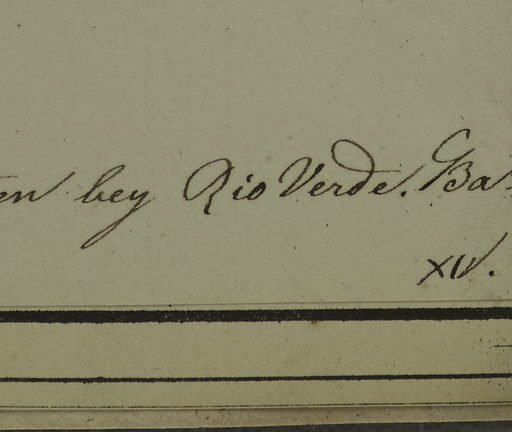 en bey Rio Verde. Ba
XIV.